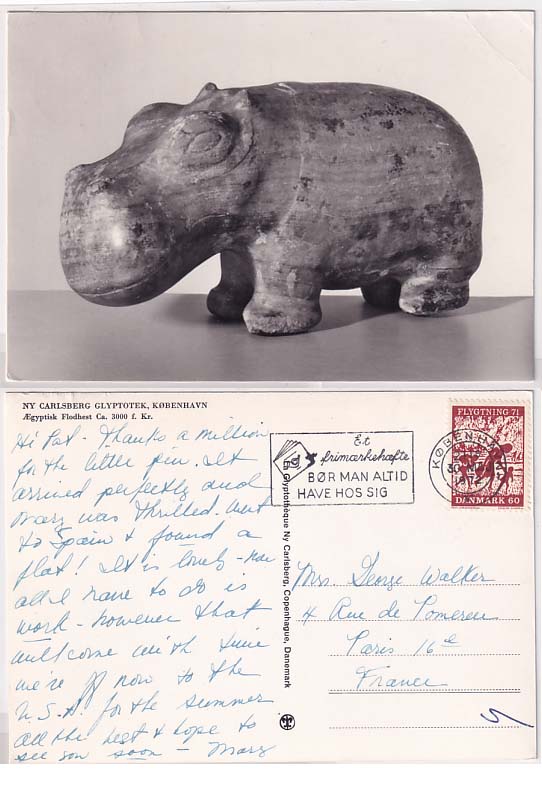 NY CARLSBERG GLYPTOTEK, KØBENHAVN
Ægyptisk Flodhest Ca. 3000 f. Kr.
Hi Pat - Thanks a million
for the little pin. It
arrived perfectly and
was thrilled. Went
to Spain & found a
flat! It is lovely - now
all I have to do is
work - however that
will come with time
we're off now to the
U.S.A. for the summer
all the best & hope to
see you soon - Mary
La Glyptothèque Ny Carlsberg, Copenhague, Danemark
Et
frimærkehæfte
BØR MAN ALTID
HAVE HOS SIG
KØBENHAVN
30
1972
FLYGTNING 71
DANMARK 60
Mrs. George Walker
4 Rue de Pomereu
Paris 16e
France